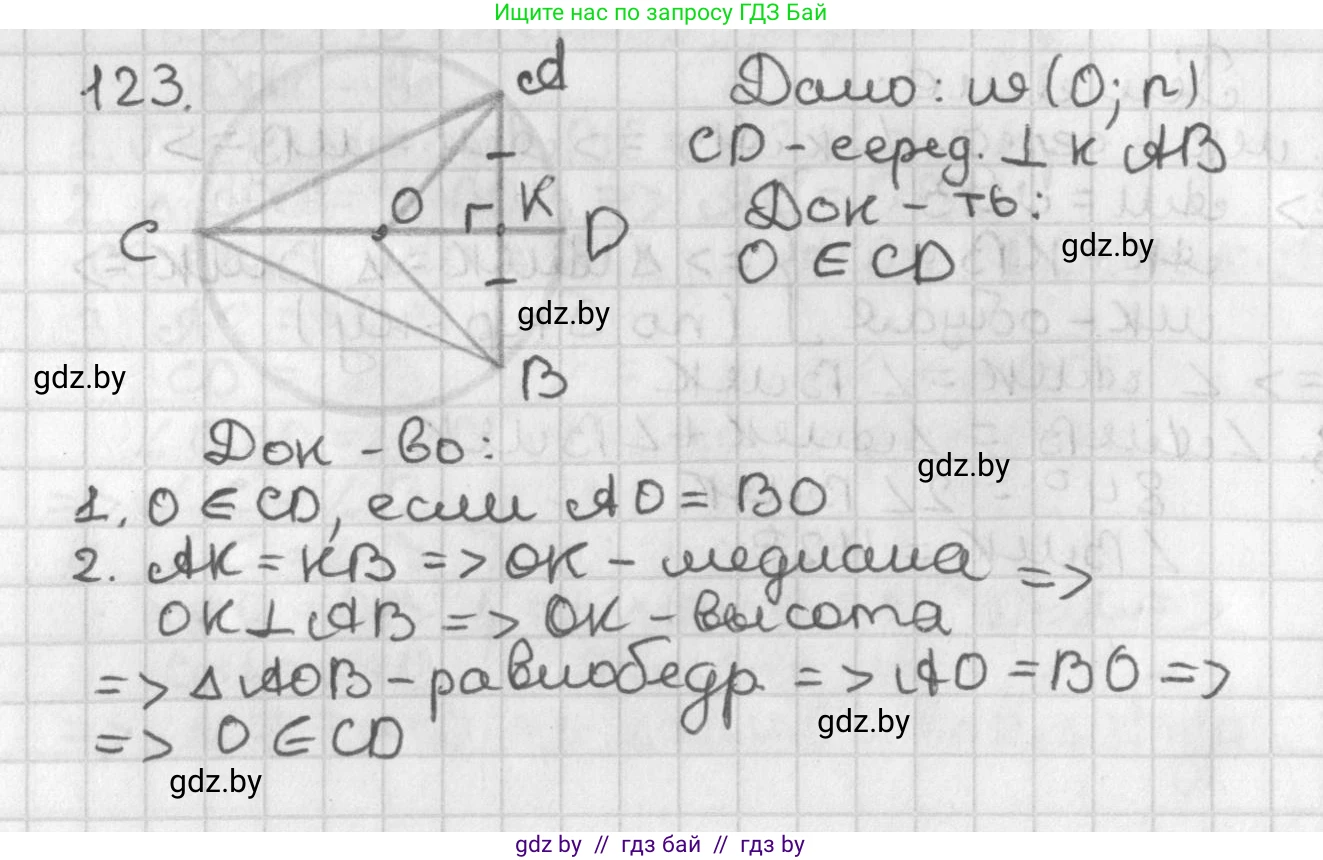 Ищите нас по запросу ГДЗ Бай
123.
A
O
K
C
D
B
Дано: ω(O; r)
CD - серед. ⊥ к AB
Док-ть:
O ∈ CD
gdz.by
gdz.by
gdz.by
Док-во:
gdz.by
1. O ∈ CD, если AO = BO
2. AK = KB => OK - медиана =>
OK ⊥ AB => OK - высота
=> △ AOB - равнобедр. => AO = BO =>
gdz.by
=> O ∈ CD
gdz.by
gdz by // гдз бай // гдз by